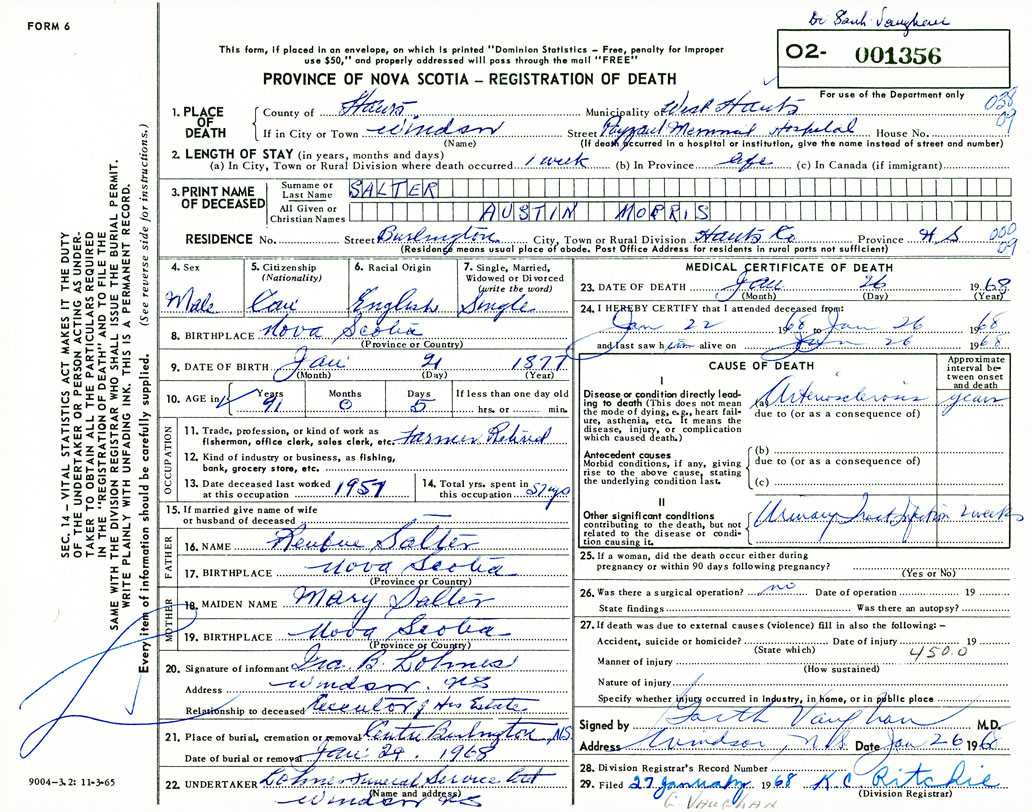 FORM 6
Dr Garth Vaughan
This form, if placed in an envelope, on which is printed "Dominion Statistics – Free, penalty for improper
use $50," and properly addressed will pass through the mail "FREE"
PROVINCE OF NOVA SCOTIA – REGISTRATION OF DEATH
O2- 001356
For use of the Department only
1. PLACE OF DEATH
County of Hants Municipality of West Hants
038
09
If in City or Town Windsor Street Payzant Memorial Hospital House No.
(Name) (If death occurred in a hospital or institution, give the name instead of street and number)
2. LENGTH OF STAY (in years, months and days)
(a) In City, Town or Rural Division where death occurred 1 week (b) In Province age (c) In Canada (if immigrant)
3. PRINT NAME OF DECEASED
Surname or Last Name SALTER
All Given or Christian Names AUSTIN MORRIS
RESIDENCE No. Street Burlington City, Town or Rural Division Hants Co Province N S
000
09
(Residence means usual place of abode. Post Office Address for residents in rural parts not sufficient)
4. Sex Male
5. Citizenship (Nationality) Can
6. Racial Origin English
7. Single, Married, Widowed or Divorced (write the word) Single
8. BIRTHPLACE Nova Scotia
(Province or Country)
9. DATE OF BIRTH Jan 21 1877
(Month) (Day) (Year)
10. AGE in Years 91 Months 0 Days 5 If less than one day old hrs. or min.
OCCUPATION
11. Trade, profession, or kind of work as
fisherman, office clerk, sales clerk, etc. Farmer Retired
12. Kind of industry or business, as fishing,
bank, grocery store, etc.
13. Date deceased last worked
at this occupation 1957
14. Total yrs. spent in
this occupation 57 yrs
15. If married give name of wife
or husband of deceased
FATHER
16. NAME Reubue Salter
17. BIRTHPLACE Nova Scotia
(Province or Country)
MOTHER
18. MAIDEN NAME Mary Salter
19. BIRTHPLACE Nova Scotia
(Province or Country)
20. Signature of informant Ira B. Lohnes
Address Windsor. NS
Relationship to deceased Executor of His Estate
21. Place of burial, cremation or removal Centre Burlington, NS
Date of burial or removal Jan 29. 1968
22. UNDERTAKER Lohnes Funeral Service Ltd
(Name and address)
Windsor NS
MEDICAL CERTIFICATE OF DEATH
23. DATE OF DEATH Jan 26 1968
(Month) (Day) (Year)
24. I HEREBY CERTIFY that I attended deceased from:
Jan 22 1968 to Jan 26 1968
and last saw him alive on Jan 26 1968
CAUSE OF DEATH
Approximate interval between onset and death
I
Disease or condition directly leading to death (This does not mean the mode of dying, e.g., heart failure, asthenia, etc. It means the disease, injury, or complication which caused death.)
(a) Arteriosclerosis years
due to (or as a consequence of)
Antecedent causes
Morbid conditions, if any, giving rise to the above cause, stating the underlying condition last.
(b)
due to (or as a consequence of)
(c)
II
Other significant conditions
contributing to the death, but not related to the disease or condition causing it.
Urinary Tract Infection 2 weeks
25. If a woman, did the death occur either during
pregnancy or within 90 days following pregnancy?
(Yes or No)
26. Was there a surgical operation? no Date of operation 19
State findings Was there an autopsy?
27. If death was due to external causes (violence) fill in also the following: –
Accident, suicide or homicide? Date of injury 19
(State which) 450.0
Manner of injury
(How sustained)
Nature of injury
Specify whether injury occurred in Industry, in home, or in public place
Signed by Garth Vaughan M.D.
Address Windsor, N.S. Date Jan 26 1968
28. Division Registrar's Record Number
29. Filed 27 January 1968 K. C. Ritchie
(Division Registrar)
G. VAUGHAN
SEC. 14 – VITAL STATISTICS ACT MAKES IT THE DUTY
OF THE UNDERTAKER OR PERSON ACTING AS UNDER-
TAKER TO OBTAIN ALL THE PARTICULARS REQUIRED
IN THE "REGISTRATION OF DEATH" AND TO FILE THE
SAME WITH THE DIVISION REGISTRAR WHO SHALL ISSUE THE BURIAL PERMIT.
WRITE PLAINLY WITH UNFADING INK. THIS IS A PERMANENT RECORD.
Every item of information should be carefully supplied. (See reverse side for instructions.)
9004–3.2: 11-3-65